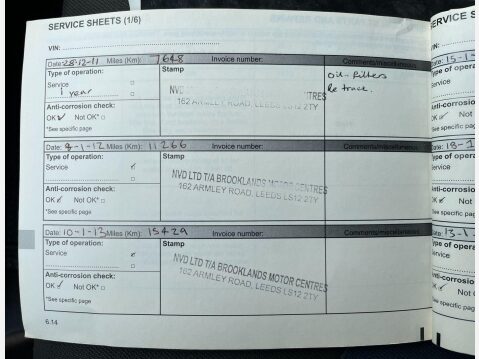 SERVICE SHEETS (1/6)
VIN:
Date: 28-12-11 Miles (Km): 7648 Invoice number: Comments/miscellaneous
Type of operation: Stamp
Service
1 year
NVD TRES
162 ARMLEY ROAD, LEEDS LS12 2TY
oil - filters
Re track.
Anti-corrosion check:
OK ✓ Not OK*
*See specific page
Date: 9-1-12 Miles (Km): 11266 Invoice number: Comments/miscellaneous
Type of operation: Stamp
Service ✓
NVD LTD T/A BROOKLANDS MOTOR CENTRES
162 ARMLEY ROAD, LEEDS LS12 2TY
Anti-corrosion check:
OK ✓ Not OK*
*See specific page
Date: 10-1-13 Miles (Km): 15429 Invoice number: Comments/miscellaneous
Type of operation: Stamp
Service ✓
NVD LTD T/A BROOKLANDS MOTOR CENTRES
162 ARMLEY ROAD, LEEDS LS12 2TY
Anti-corrosion check:
OK ✓ Not OK*
*See specific page
6.14
SERVICE
VIN:
Date: 15-1-
Type of opera
Service
Anti-corrosion
OK Not
*See specific page
Date: 18-1
Type of oper
Service
Anti-corros
OK Not
*See specific
Date: 13-1
Type of ope
Service
Anti-corro
OK Not
*See specific